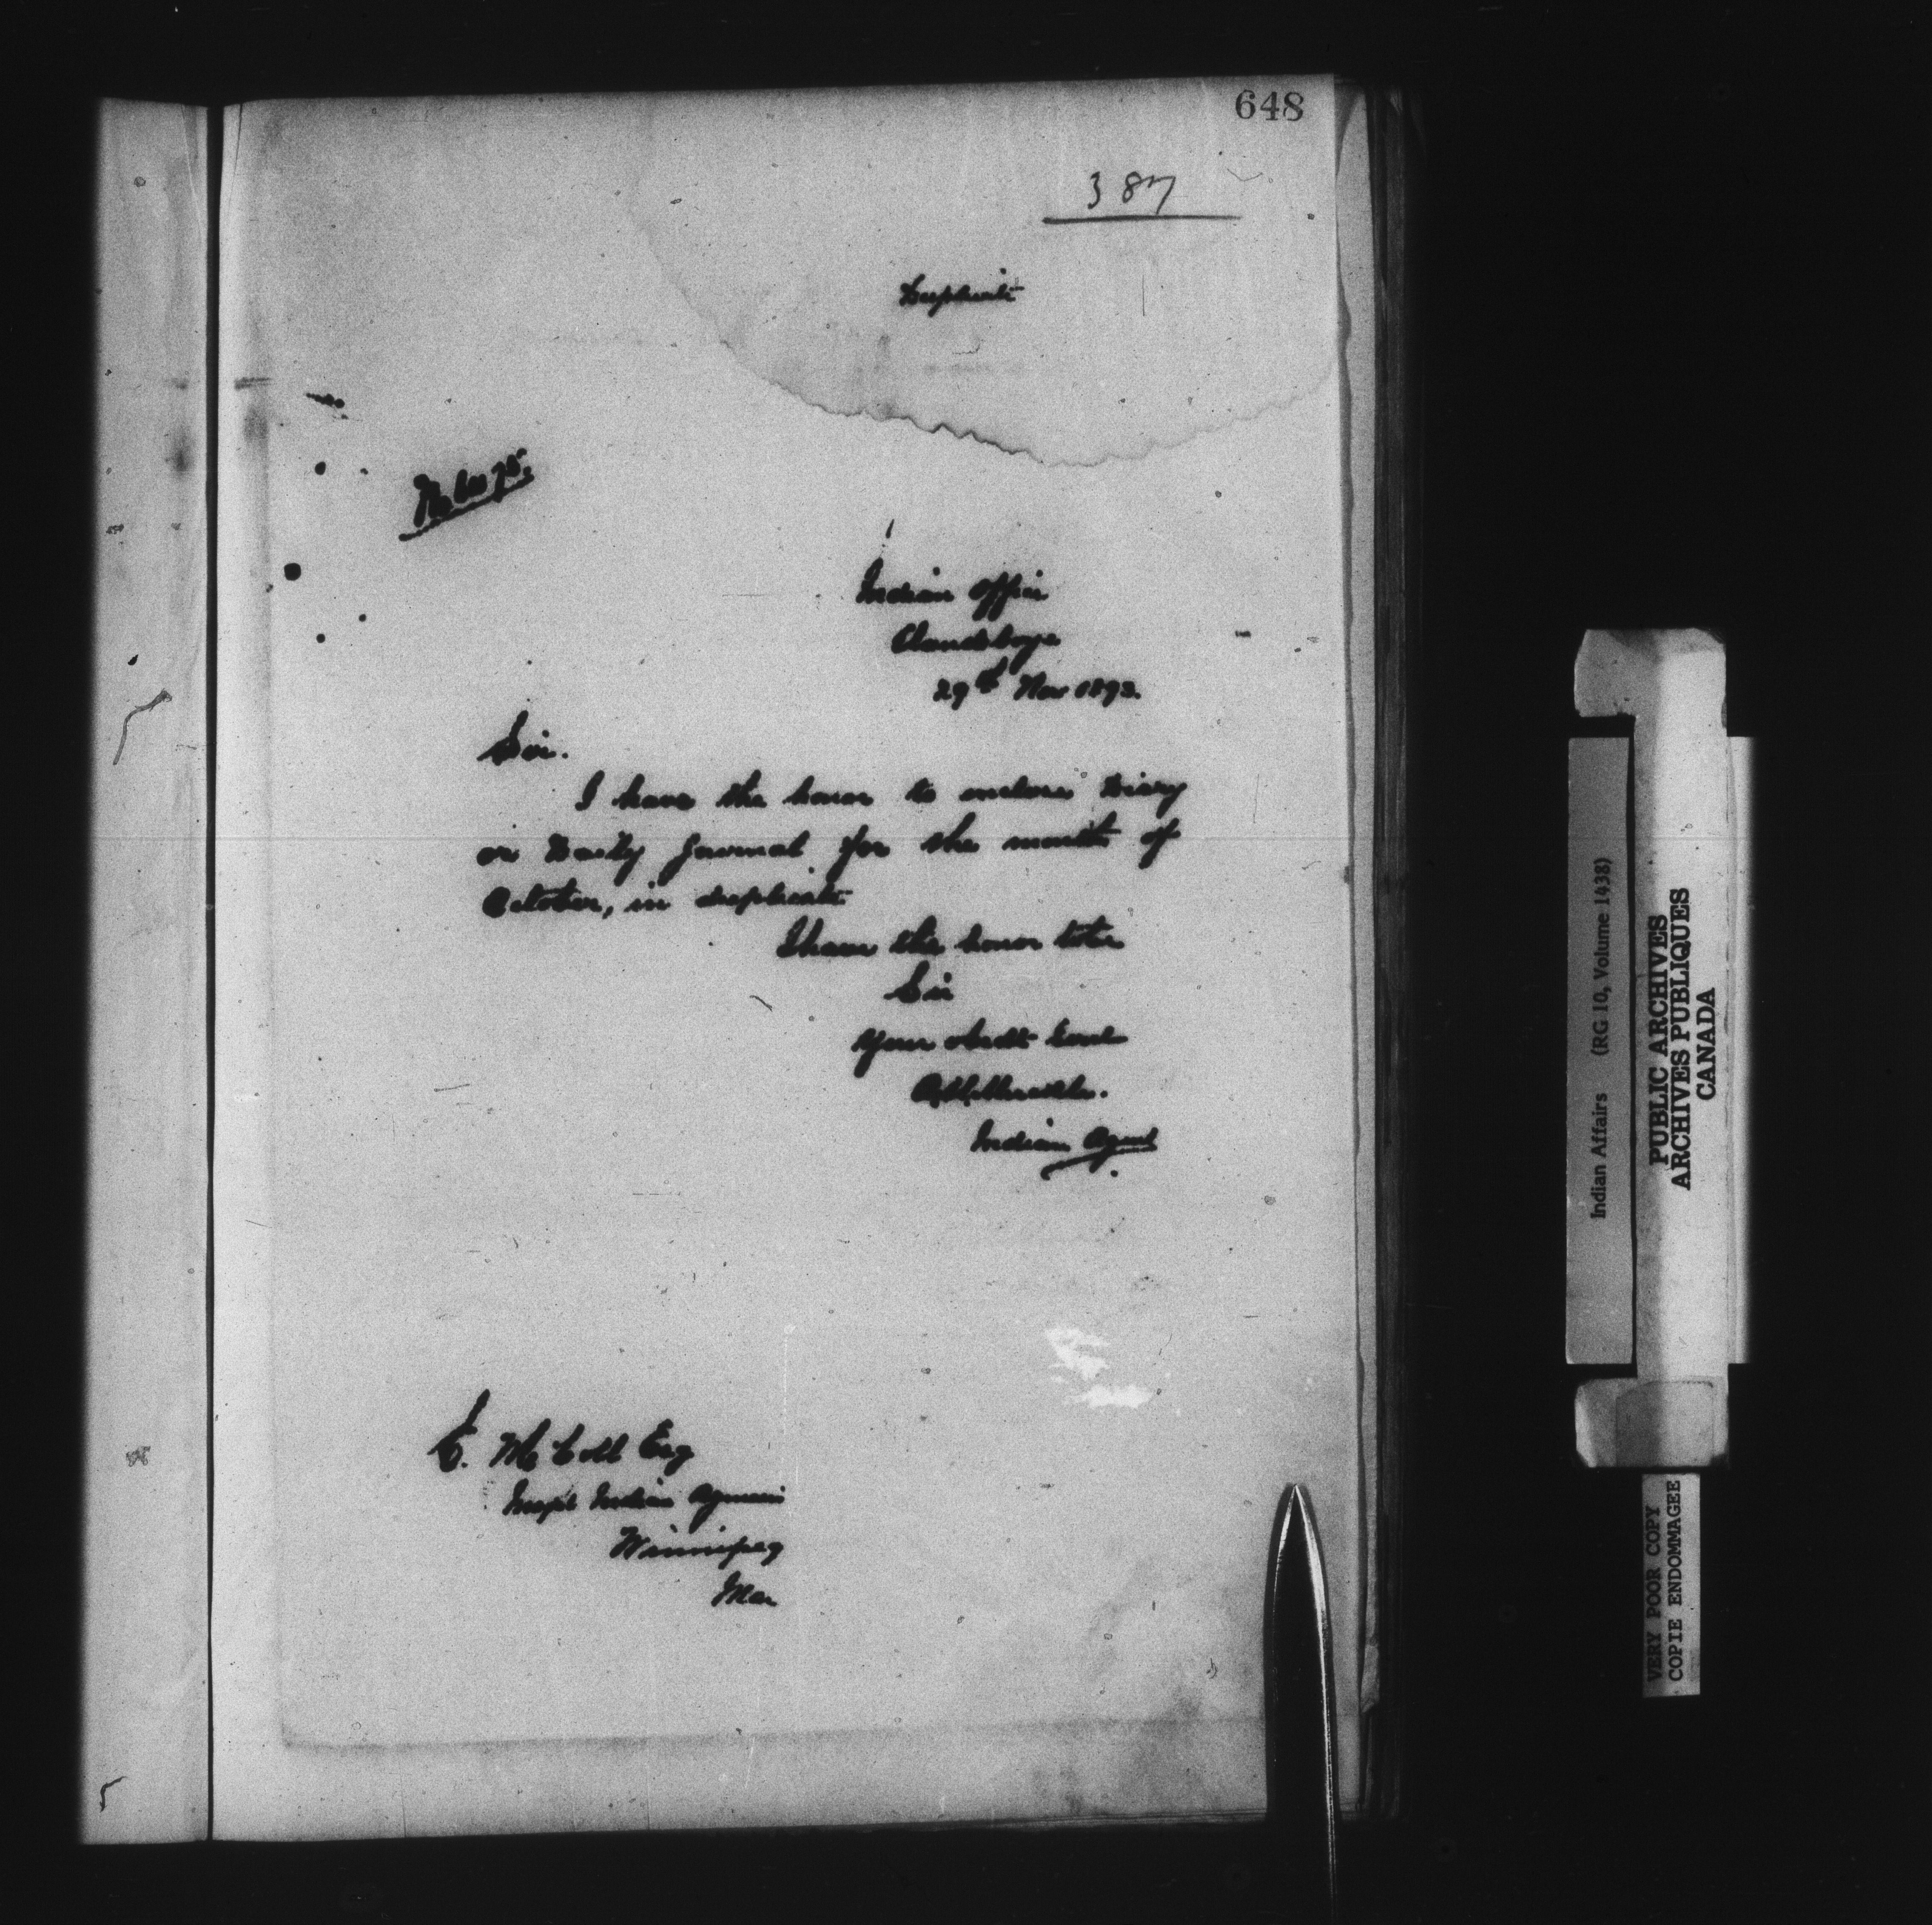 648
387
Duplicate
Indian Office
Clandeboye
29th Nov 1893.
Sir.
I have the honor to enclose Diary
or Daily Journal for the month of
October, in duplicate
I have the honor to be
Sir
Your obedt Servt
Indian Agent
E. McColl Esq
Inspt Indian Agencies
Winnipeg
Man
Indian Affairs (RG 10, Volume 1438)
PUBLIC ARCHIVES
ARCHIVES PUBLIQUES
CANADA
VERY POOR COPY
COPIE ENDOMMAGEE